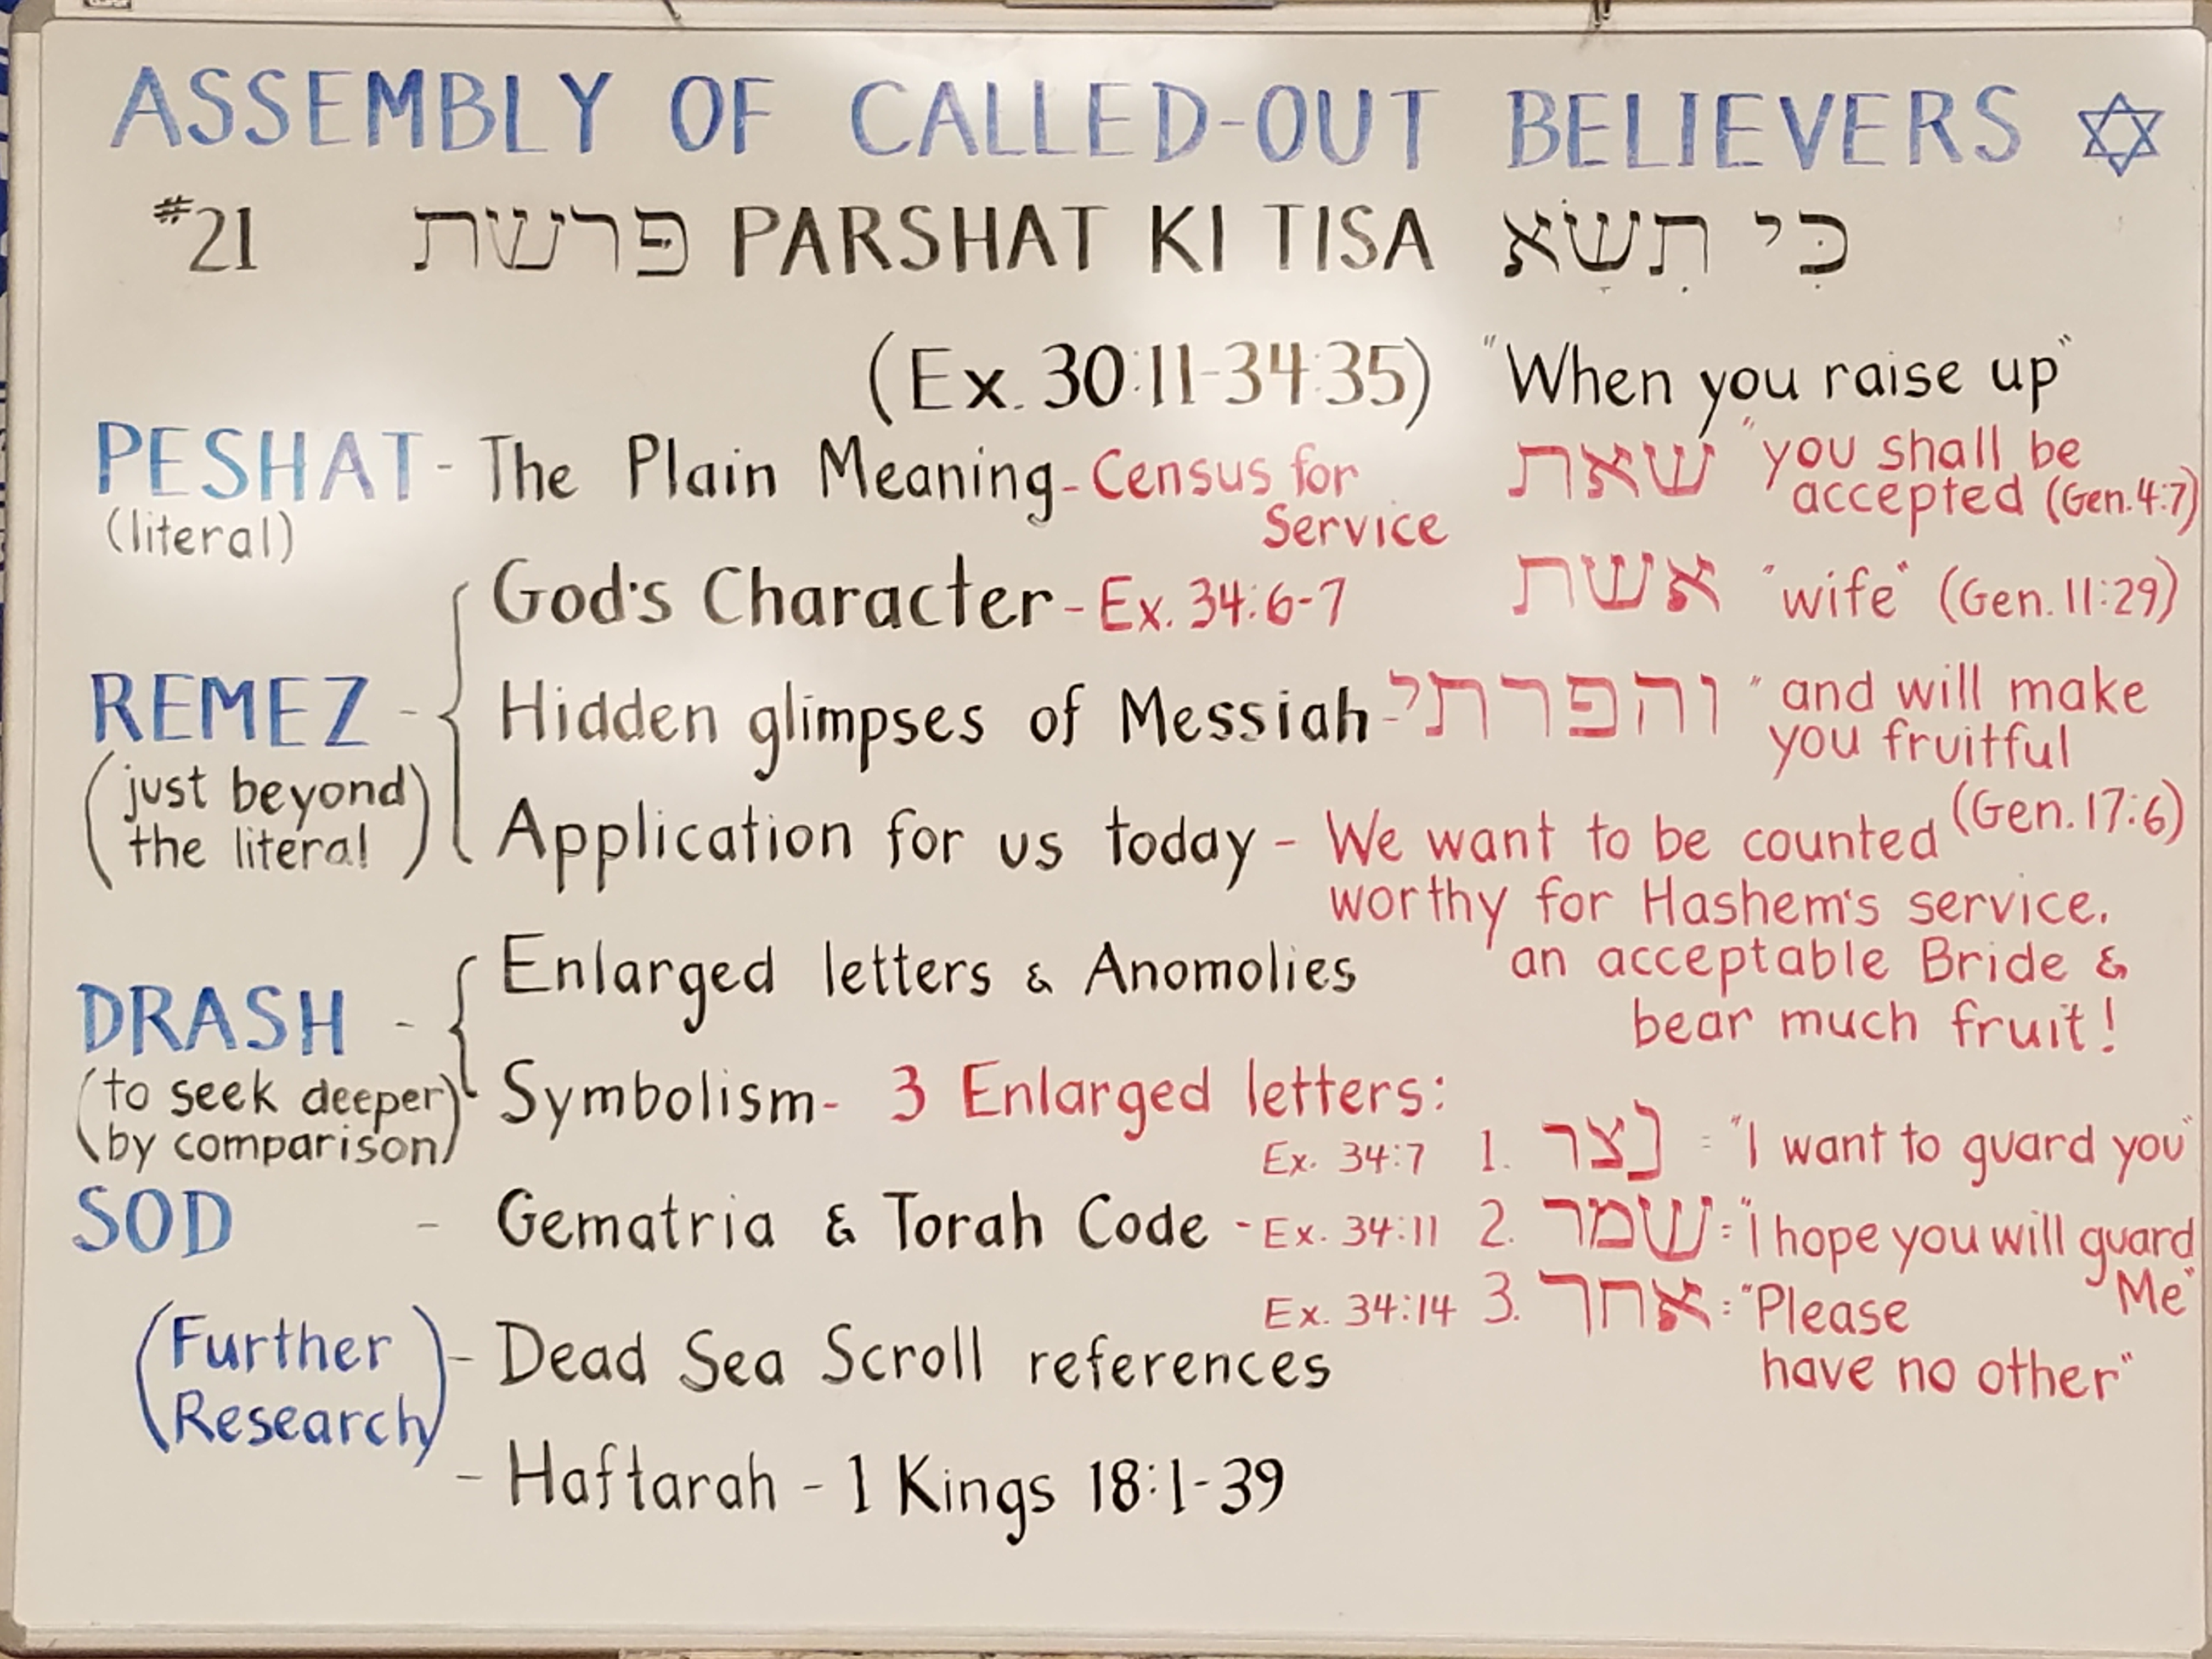 ASSEMBLY OF CALLED-OUT BELIEVERS ✡
#21 פרשת PARSHAT KI TISA כִּי תִשָּׂא
(Ex. 30:11-34:35) "When you raise up"
PESHAT - The Plain Meaning - Census for Service
(literal)
שאת "you shall be accepted (Gen. 4:7)
God's Character - Ex. 34:6-7
אשת "wife" (Gen. 11:29)
REMEZ - Hidden glimpses of Messiah - והפרתי "and will make you fruitful (Gen. 17:6)
(just beyond
the literal)
Application for us today - We want to be counted
worthy for Hashem's service,
an acceptable Bride &
bear much fruit!
DRASH - Enlarged letters & Anomolies
(to seek deeper
by comparison)
Symbolism - 3 Enlarged letters:
Ex. 34:7 1. נצר = "I want to guard you"
SOD - Gematria & Torah Code - Ex. 34:11 2. שמר = "I hope you will guard Me"
Ex. 34:14 3. אחר = "Please
have no other"
(Further
Research)
- Dead Sea Scroll references
- Haftarah - 1 Kings 18:1-39